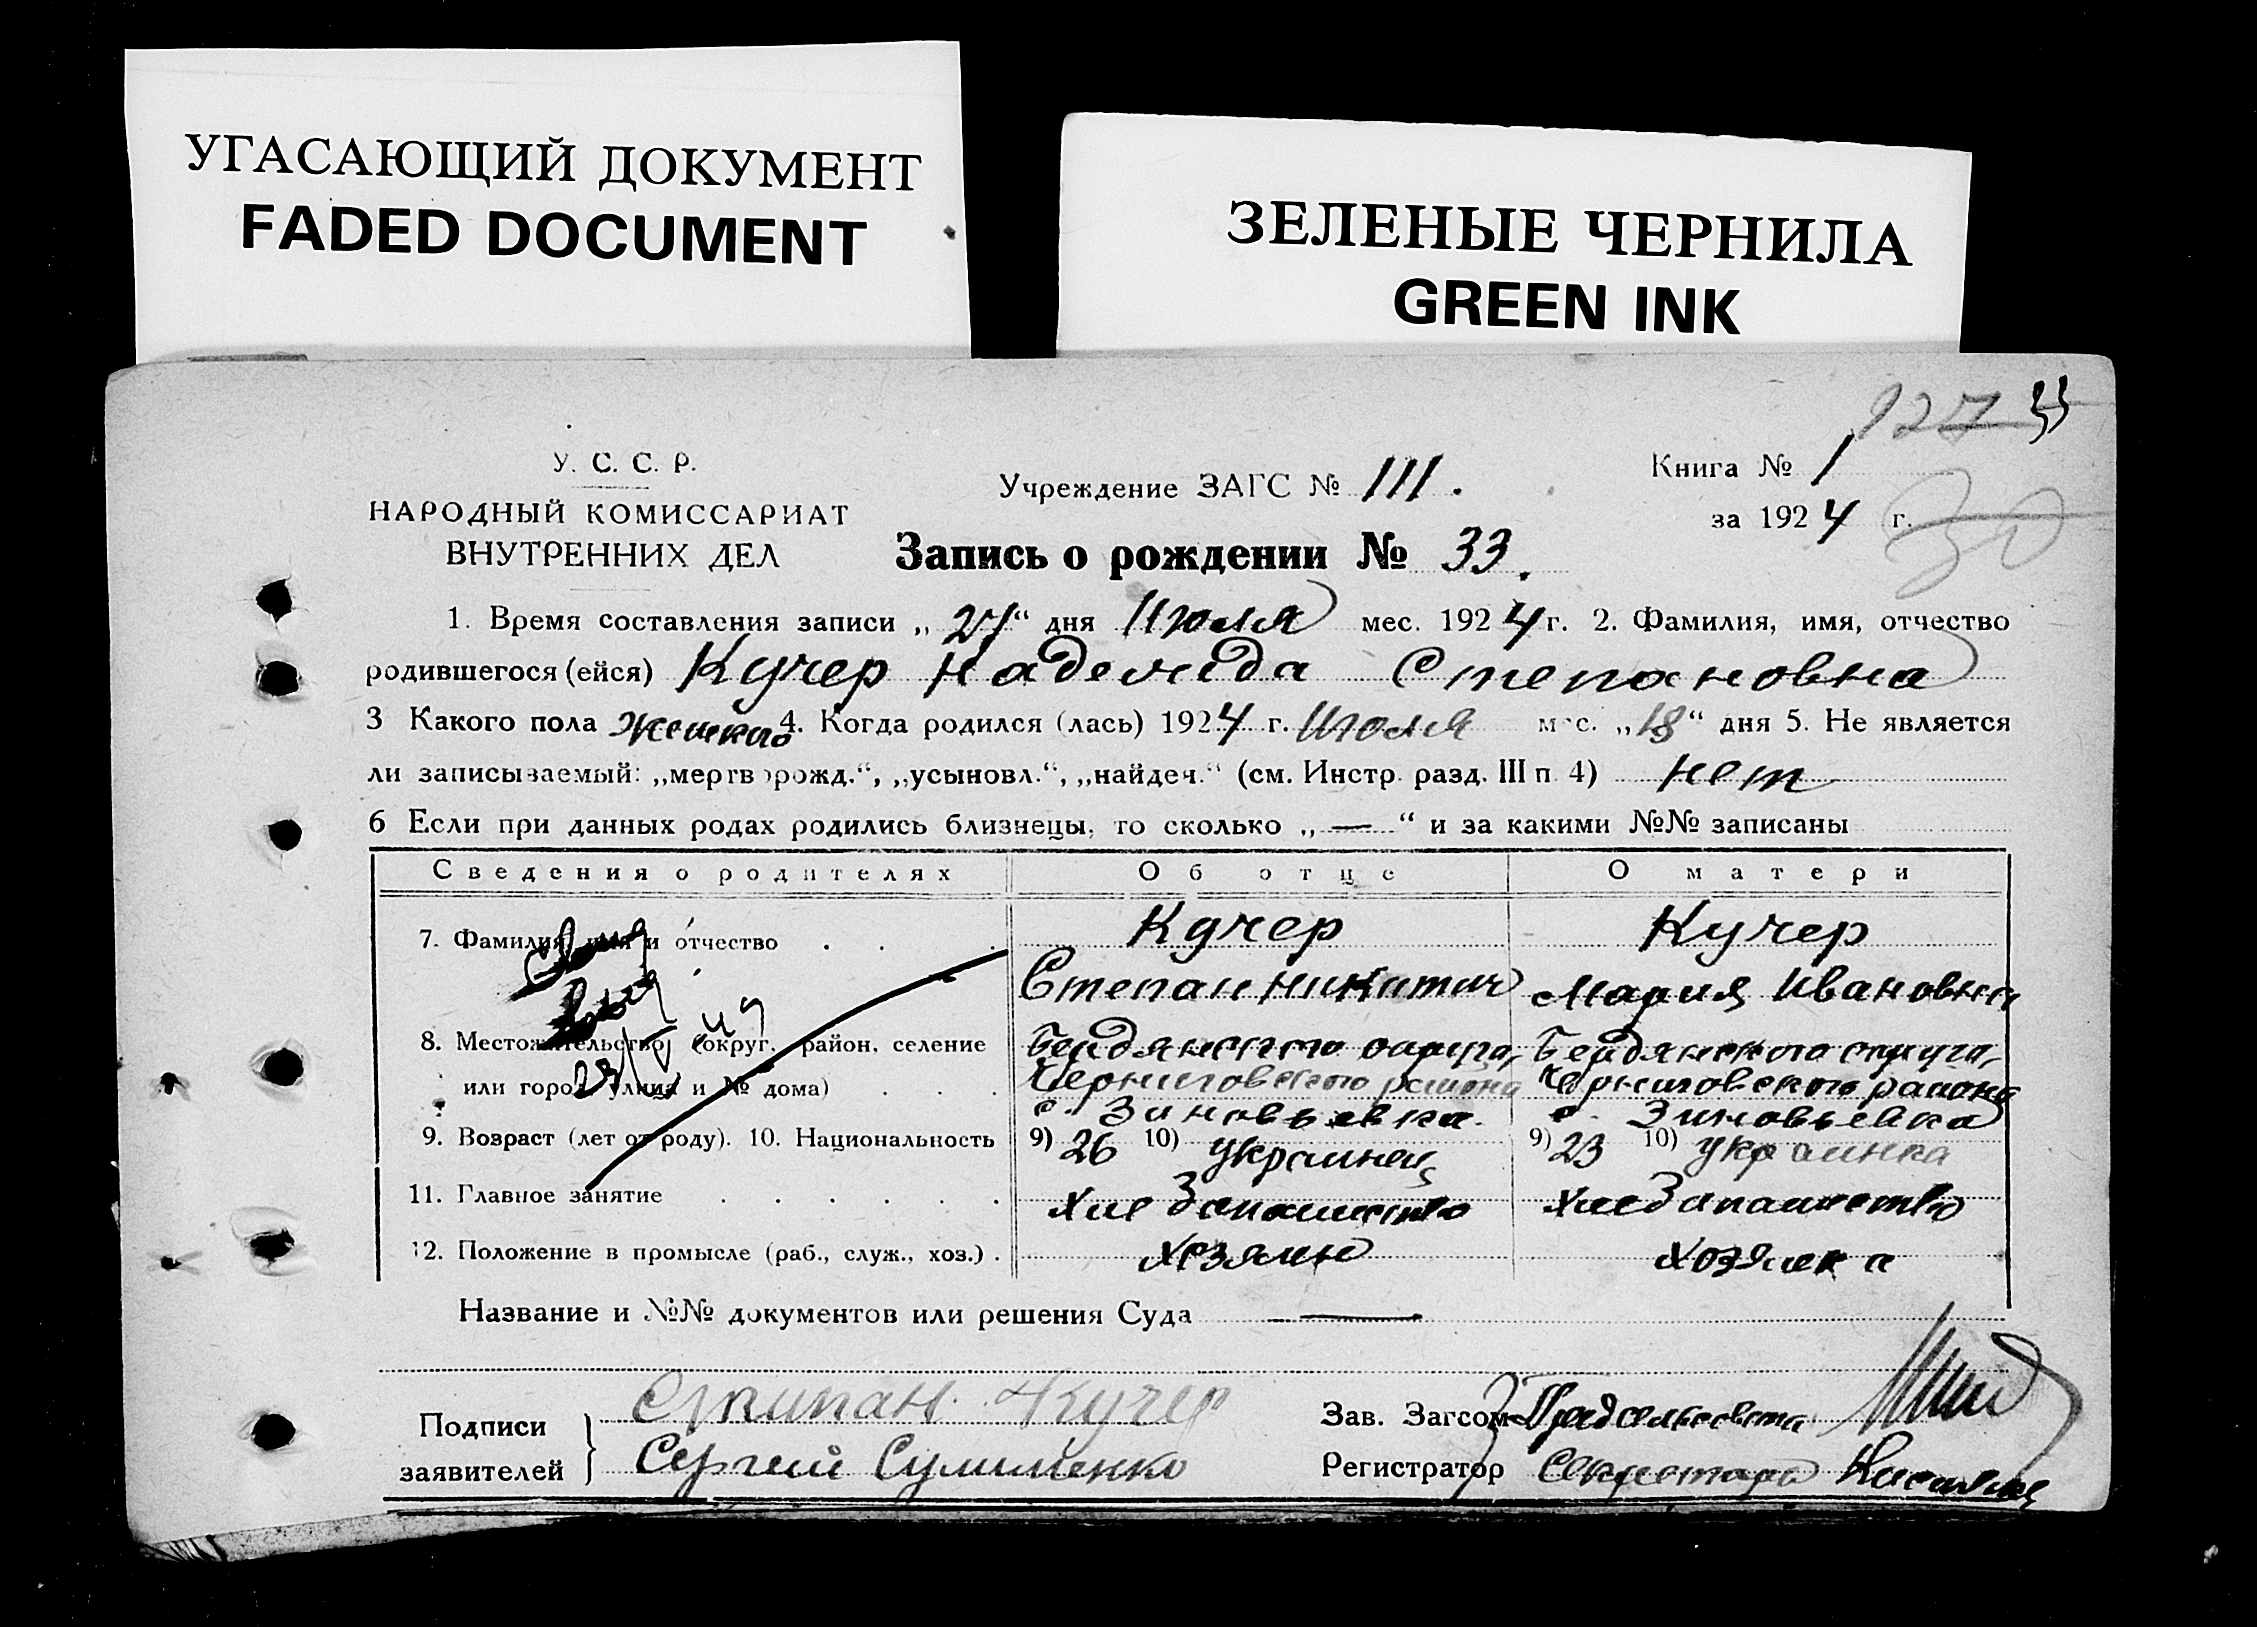 УГАСАЮЩИЙ ДОКУМЕНТ
FADED DOCUMENT
ЗЕЛЕНЫЕ ЧЕРНИЛА
GREEN INK
127 33
У. С. С. Р.
НАРОДНЫЙ КОМИССАРИАТ
ВНУТРЕННИХ ДЕЛ
Учреждение ЗАГС № 111.
Книга № 1
за 1924 г.
30
Запись о рождении № 33.
1. Время составления записи „27“ дня Июля мес. 1924 г. 2. Фамилия, имя, отчество
родившегося (ейся) Кучер Надежда Степановна
3 Какого пола 4. Когда родился (лась) 1924 г. Июля мес. „18“ дня 5. Не является
ли записываемый: „мертворожд.“, „усыновл.“, „найден.“ (см. Инстр. разд. III п 4) нет
6 Если при данных родах родились близнецы, то сколько „—“ и за какими №№ записаны
Сведения о родителях Об отце О матери
7. Фамилия, имя и отчество Кучер Кучер
Степан Никитич Мария Ивановна
8. Местожительство (округ, район, селение Бердянского округа, Бердянского округа,
или город, улица и № дома) Черниговского района Черниговского района
с. Зиновьевка. с. Зиновьевка
9. Возраст (лет от роду). 10. Национальность 9) 26 10) Украинец 9) 23 10) Украинка
11. Главное занятие
12. Положение в промысле (раб., служ., хоз.) хозяин хозяйка
Название и №№ документов или решения Суда —
Подписи заявителей
Кучер
Сергей
Зав. Загсом Предсельсовета
Регистратор Секретарь